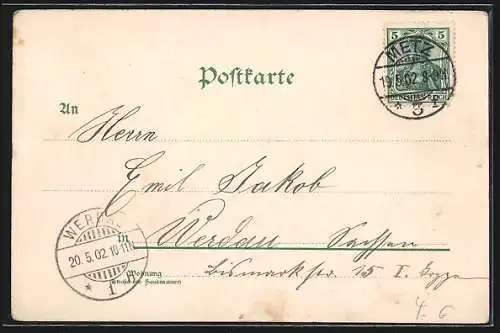 5 5
METZ
19.5.02.8-9N
* 3 P
Postkarte
An
Herrn
Emil Jakob
in Werdau Sachsen
WERDAU
20.5.02.10-11V
* 1
Wohnung
(Straße und Hausnummer)
Bismarckstr. 15 I. Treppe
4. 6